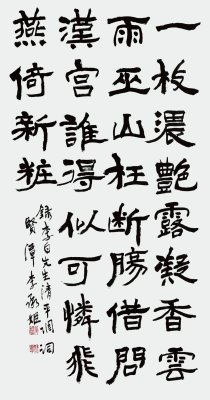 一枝濃艷露凝香雲
雨巫山枉斷腸借問
漢宮誰得似可憐飛
燕倚新粧
錄李白先生清平調詞
賢潭李姬